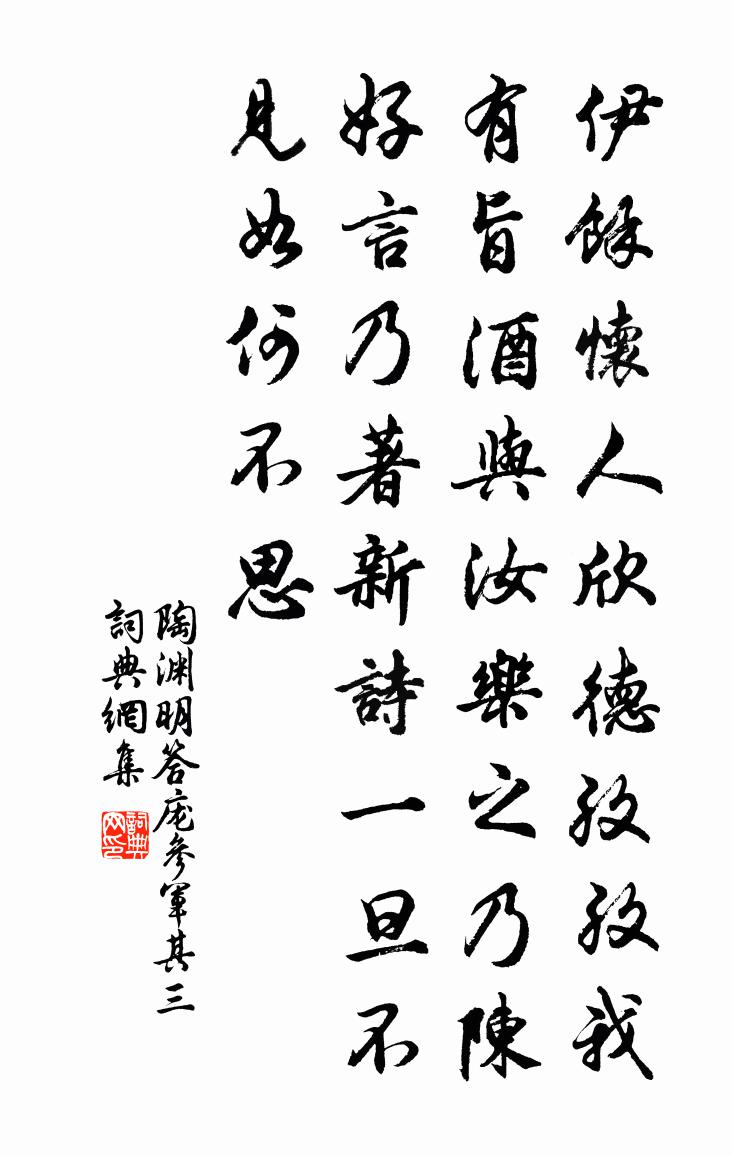 伊餘懷人欣德孜孜我
有旨酒與汝樂之乃陳
好言乃著新詩一旦不
見如何不思
陶淵明答庞參軍其三
詞典網集
詞典网印